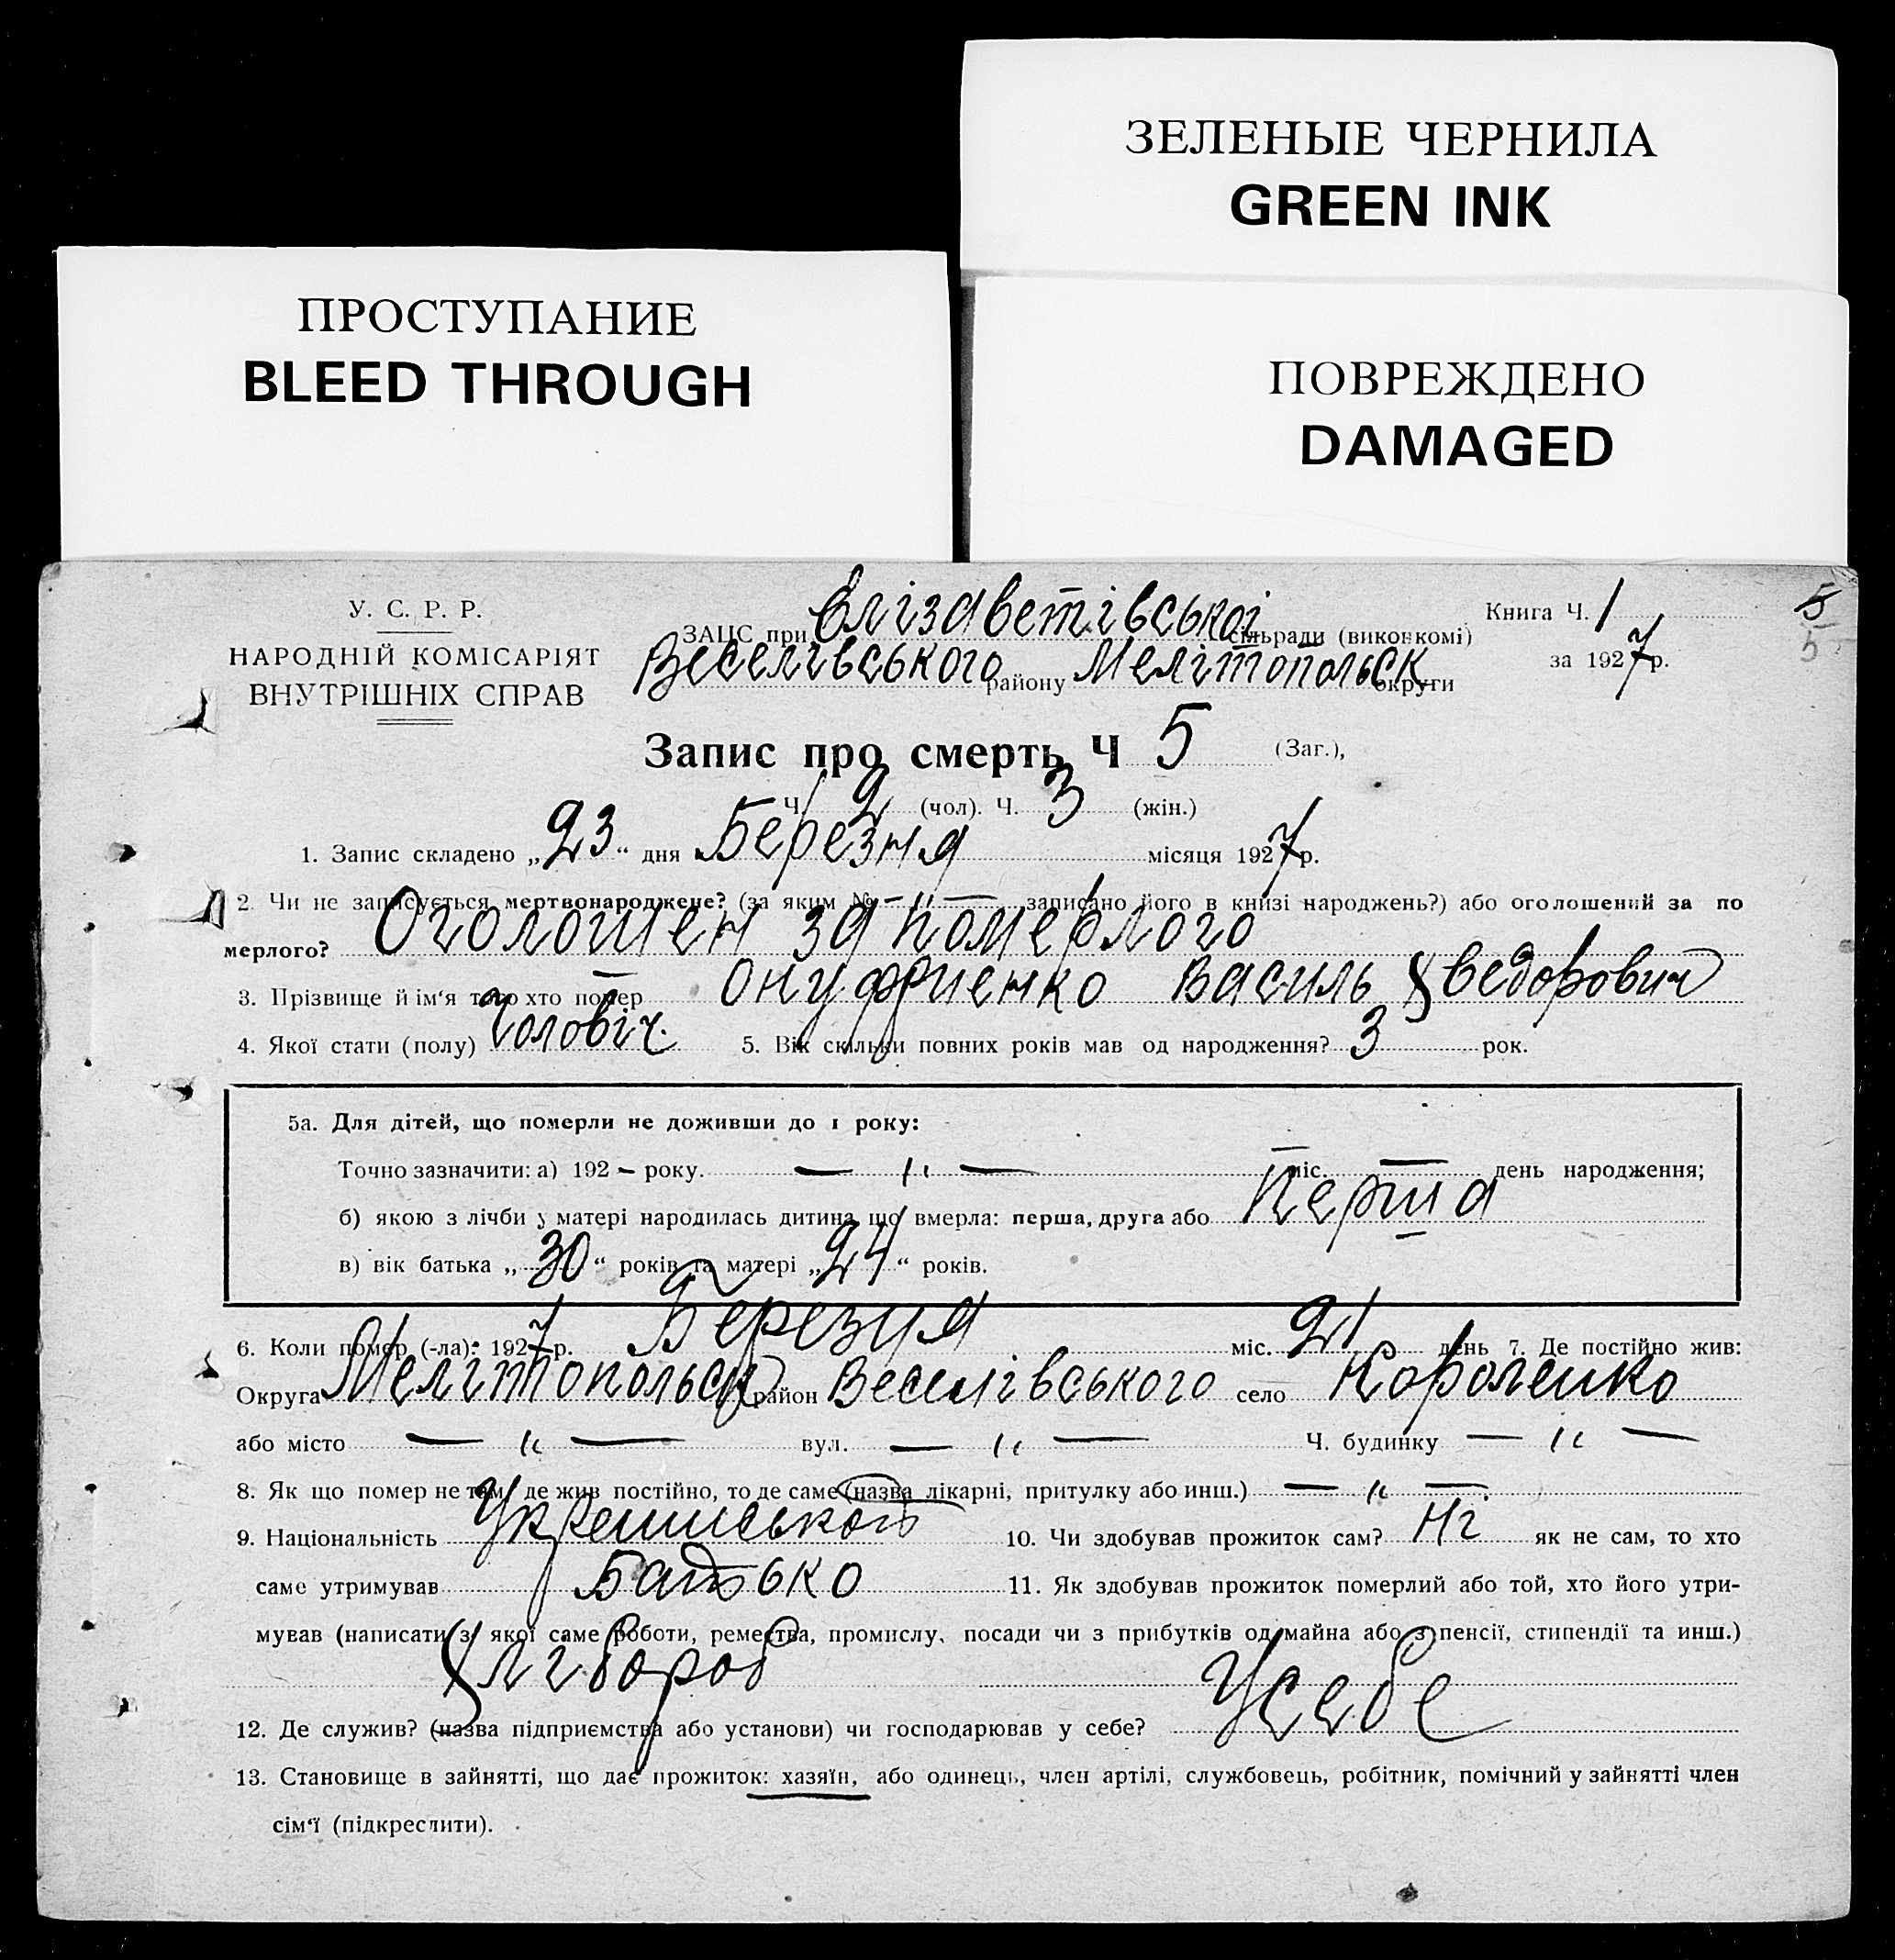 ЗЕЛЕНЫЕ ЧЕРНИЛА
GREEN INK
ПРОСТУПАНИЕ
BLEED THROUGH
ПОВРЕЖДЕНО
DAMAGED
У. С. Р. Р.
НАРОДНІЙ КОМІСАРІЯТ
ВНУТРІШНІХ СПРАВ
ЗАЦС при Єлізаветівської сільради (виконкомі)
Веселівського району Мелітопольск округи
Книга Ч. 1
за 1927 р.
5
5
Запис про смерть Ч 5 (Заг.),
Ч. 2 (чол). Ч. 3 (жін.)
1. Запис складено „23“ дня Березня місяця 1927 р.
2. Чи не записується мертвонароджене? (за яким № — " — записано його в книзі народжень?) або оголошений за по
мерлого? Оголошен за померлого
3. Прізвище й ім‘я того хто помер Онуфриенко Василь Хведорович
4. Якої стати (полу) Чоловіч. 5. Вік скільки повних років мав од народження? 3 рок.
5а. Для дітей, що померли не доживши до 1 року:
Точно зазначити: а) 192 — року. — " — міс. — день народження;
б) якою з лічби у матері народилась дитина, що вмерла: перша, друга або Перша
в) вік батька „30“ років та матері „24“ років.
6. Коли помер (-ла): 1927 р. Березня міс. 21 день 7. Де постійно жив:
Округа Мелітопольск район Веселівського село Короленко
або місто — " — вул. — " — Ч. будинку — " —
8. Як що помер не там, де жив постійно, то де саме (назва лікарні, притулку або инш.) — " —
9. Національність 10. Чи здобував прожиток сам? Ні як не сам, то хто
саме утримував Батько 11. Як здобував прожиток померлий або той, хто його утри-
мував (написати з якої саме роботи, ремества, промислу, посади чи з прибутків од майна або з пенсії, стипендії та инш.)
Хлібороб
12. Де служив? (назва підприємства або установи) чи господарював у себе? У себе
13. Становище в зайнятті, що дає прожиток: хазяїн, або одинець, член артілі, службовець, робітник, помічний у зайнятті член
сім‘ї (підкреслити).